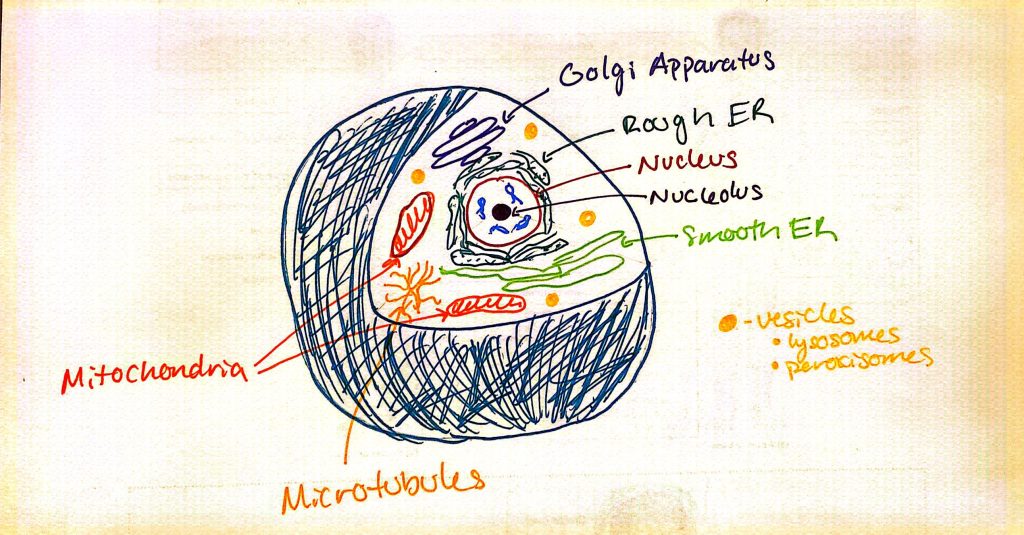 Golgi Apparatus
Rough ER
Nucleus
Nucleolus
Smooth ER
- vesicles
• lysosomes
• peroxisomes
Mitochondria
Microtubules